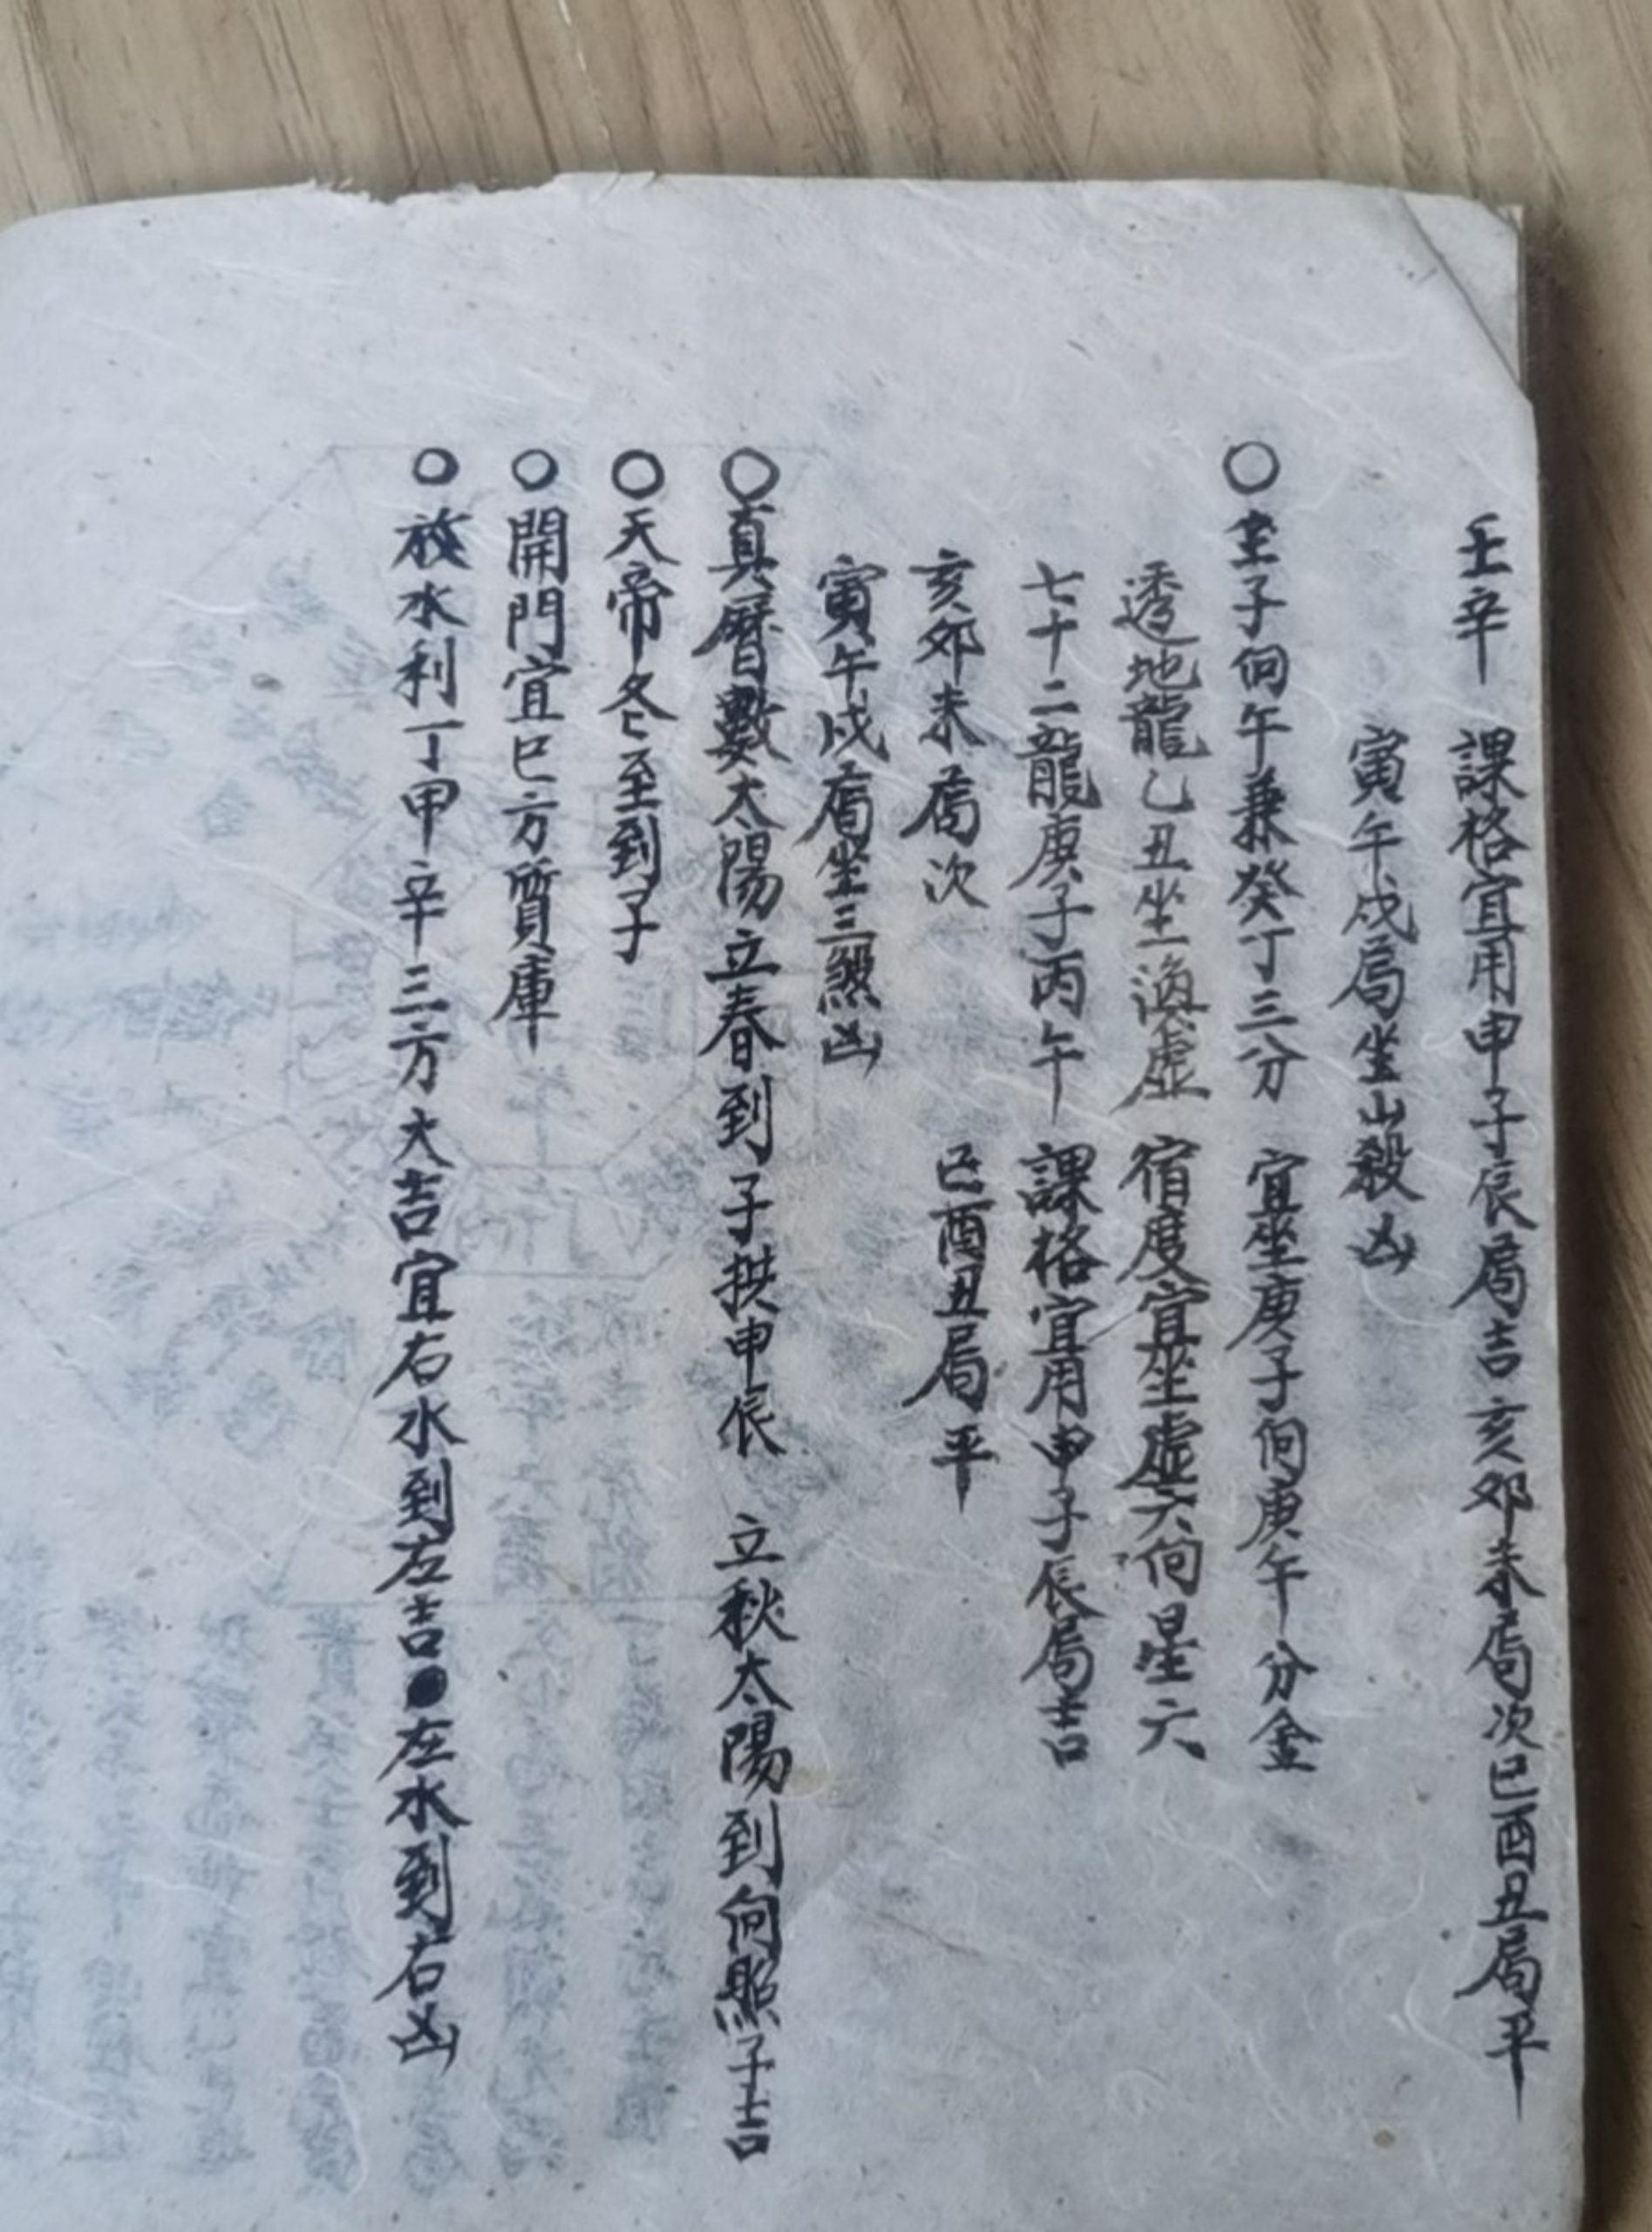 壬辛　課格宜用申子辰局吉亥卯未局次巳酉丑局平
寅午戌局坐山殺凶
○坐子向午兼癸丁三分　宜坐庚子向庚午分金
透地龍乙丑坐渙虛　宿度宜坐虛六向星六
七十二龍庚子丙午　課格宜用申子辰局吉
亥卯未局次　巳酉丑局平
寅午戌局坐三煞凶
○真曆數太陽立春到子拱申辰　立秋太陽到向照子吉
○天帝冬至到子
○開門宜巳方質庫
○放水利丁甲辛三方大吉宜右水到左吉●左水到右凶